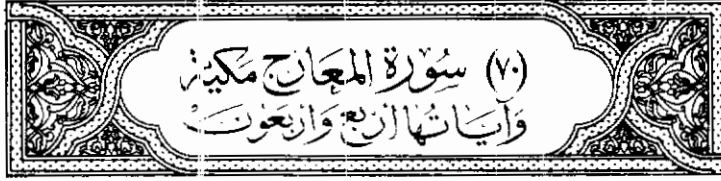 (٧٠) سُوْرَةُ المَعَارِجِ مَكيَّة
وَآيَاتُهَا أَرْبَعٌ وَارْبَعُونَ